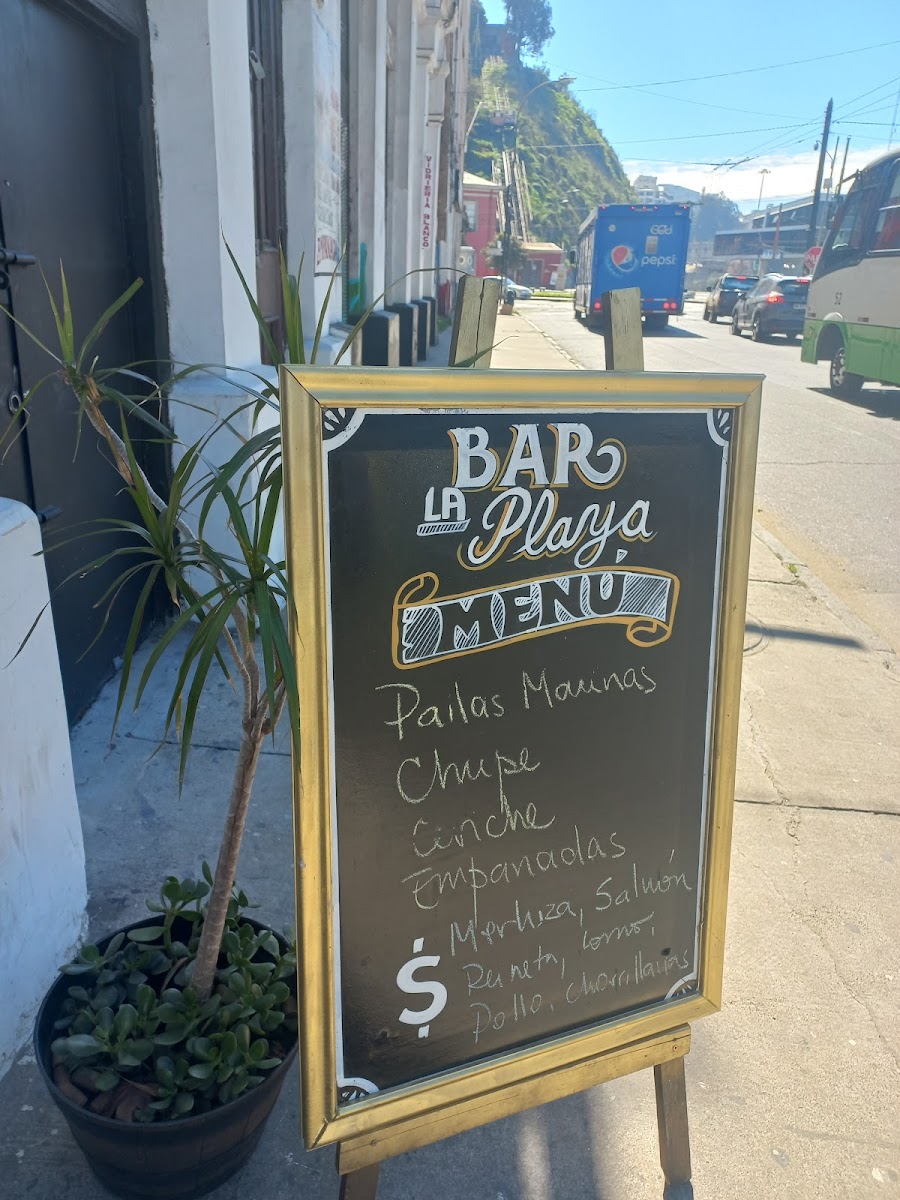 BAR
LA Playa
MENÚ
Pailas Marinas
Chupe
Ceviche
Empanadas
Merluza, Salmón
Reineta, Lomo,
Pollo, chorrillanas
$
VIDRIERIA BLANCO
pepsi
52